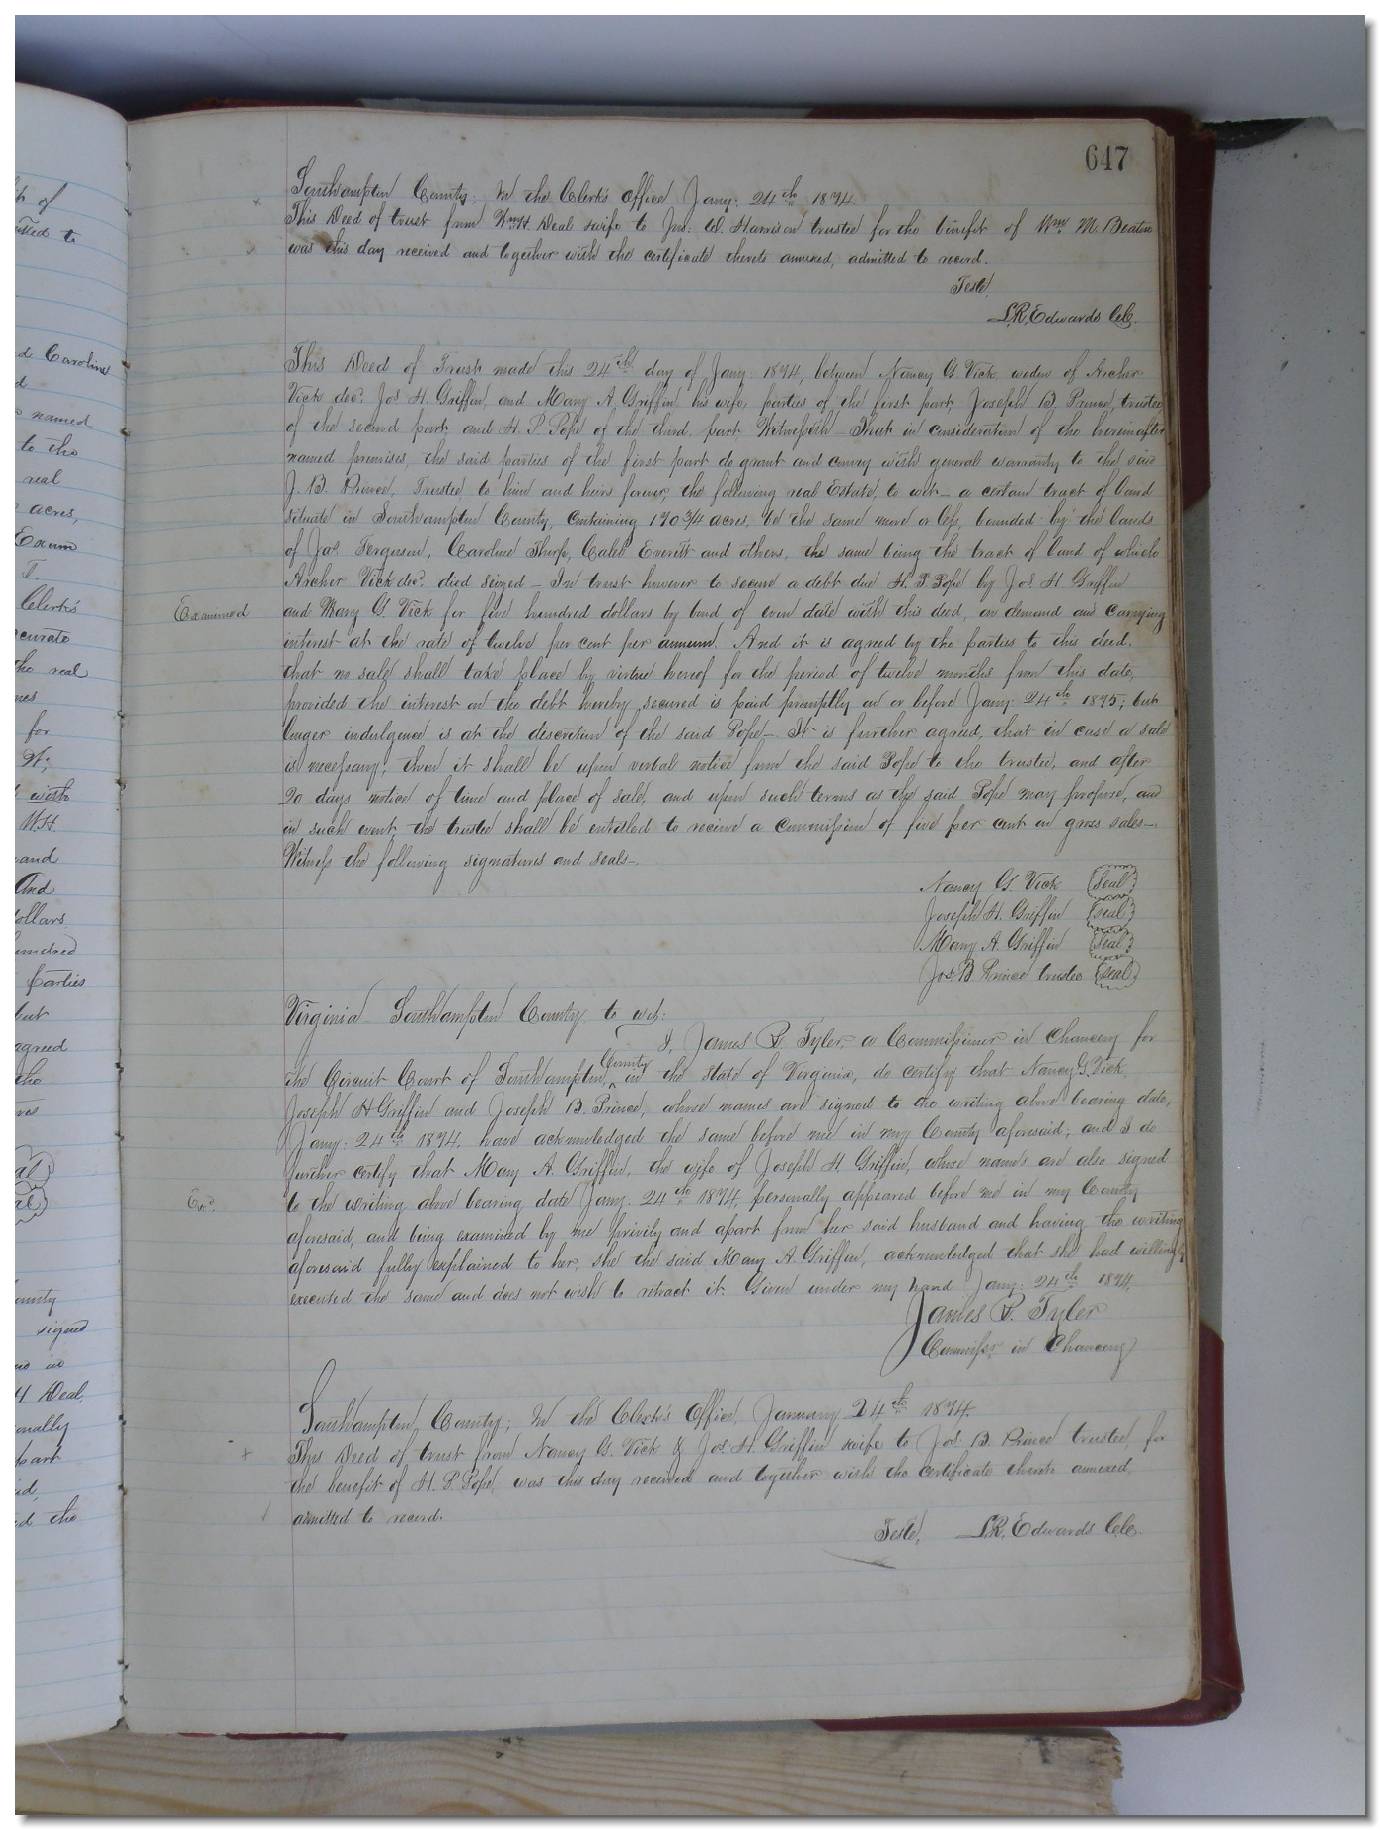 647
Southampton County, In the Clerk's Office Jany. 24th 1874.
This Deed of trust from Wm H. Deal & wife to Jno. W. Harrison trustee for the benefit of Wm M. Beaton
was this day received and together with the certificate thereto annexed, admitted to record.
Teste,
L.R. Edwards C.C.
This Deed of Trust made this 24th day of Jany. 1874, between Nancy G. Vick, widow of Archer
Vick decd. Jos. H. Griffin and Mary A. Griffin his wife, parties of the first part, Joseph B. Prince, trustee
of the second part, and H. P. Pope of the third part Witnesseth - That in consideration of the hereinafter
named premises, the said parties of the first part do grant and convey with general warranty to the said
J. B. Prince, Trustee to him and heirs forever, the following real Estate, to wit - a certain tract of land
situate in Southampton County, containing 170 3/4 acres, be the same more or less, bounded by the lands
of Jas. Ferguson, Caroline Thorp, Caleb Everitt and others, the same being the tract of land of which
Archer Vick decd. died seized - In trust however to secure a debt due H. P. Pope by Jos. H. Griffin
Examined
and Mary G. Vick for five hundred dollars by bond of even date with this deed, on demand and carrying
interest at the rate of twelve per cent per annum. And it is agreed by the parties to this deed,
that no sale shall take place by virtue hereof for the period of twelve months from this date,
provided the interest on the debt hereby secured is paid promptly on or before Jany. 24th 1875; but
longer indulgence is at the discretion of the said Pope - It is further agreed, that in case a sale
is necessary, then it shall be upon verbal notice from the said Pope to the trustee, and after
20 days notice of time and place of sale, and upon such terms as the said Pope may propose, and
in such event the trustee shall be entitled to receive a commission of five per cent on gross sales -
Witness the following signatures and seals -
Nancy G. Vick (Seal)
Joseph H. Griffin (Seal)
Mary A. Griffin (Seal)
Jos. B. Prince trustee (Seal)
Virginia Southampton County, to wit:
I, James R. Tyler, a Commissioner in Chancery for
the Circuit Court of Southampton County in the State of Virginia, do certify that Nancy G. Vick,
Joseph H Griffin and Joseph B. Prince, whose names are signed to the writing above bearing date,
Jany. 24th 1874, have acknowledged the same before me in my County aforesaid; and I do
further certify that Mary A. Griffin, the wife of Joseph H. Griffin, whose names are also signed
Exd.
to the writing above bearing date Jany. 24th 1874, personally appeared before me in my County
aforesaid, and being examined by me privily and apart from her said husband and having the writing
aforesaid fully explained to her, she the said Mary A. Griffin, acknowledged that she had willingly
executed the same and does not wish to retract it. Given under my hand Jany. 24th 1874.
James R. Tyler
Commissr. in Chancery
Southampton County; In the Clerk's Office, January 24th 1874.
This Deed of trust from Nancy G. Vick & Jos. H. Griffin & wife to Jos. B. Prince trustee, for
the benefit of H. P. Pope, was this day received and together with the certificate thereto annexed,
admitted to record.
Teste, L.R. Edwards C.C.